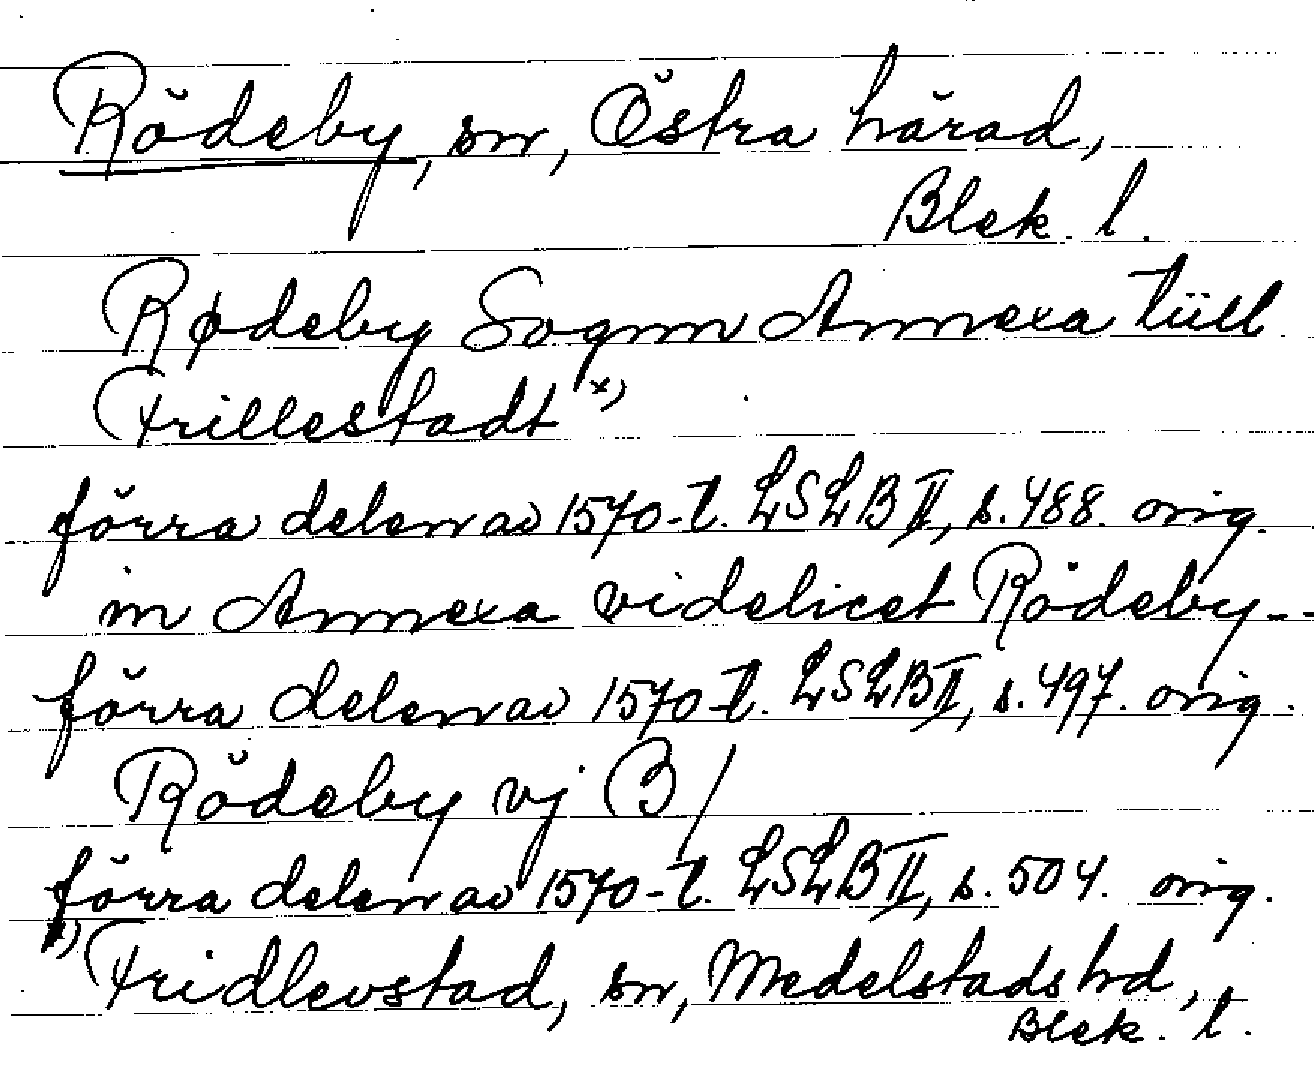 Rödeby, sn, Östra härad,
Blek. l.
Rødeby Sognn Annexa tiill
Frillestadt x)
förra delen av 1570-t. LSLB II, s. 488. orig.
in Annexa videlicet Rödeby--
förra delen av 1570-t. LSLB II, s. 497. orig.
Rödeby vj B/
förra delen av 1570-t. LSLB II, s. 504. orig.
x) Fridlevstad, sn, Medelstads hd,
Blek. l.